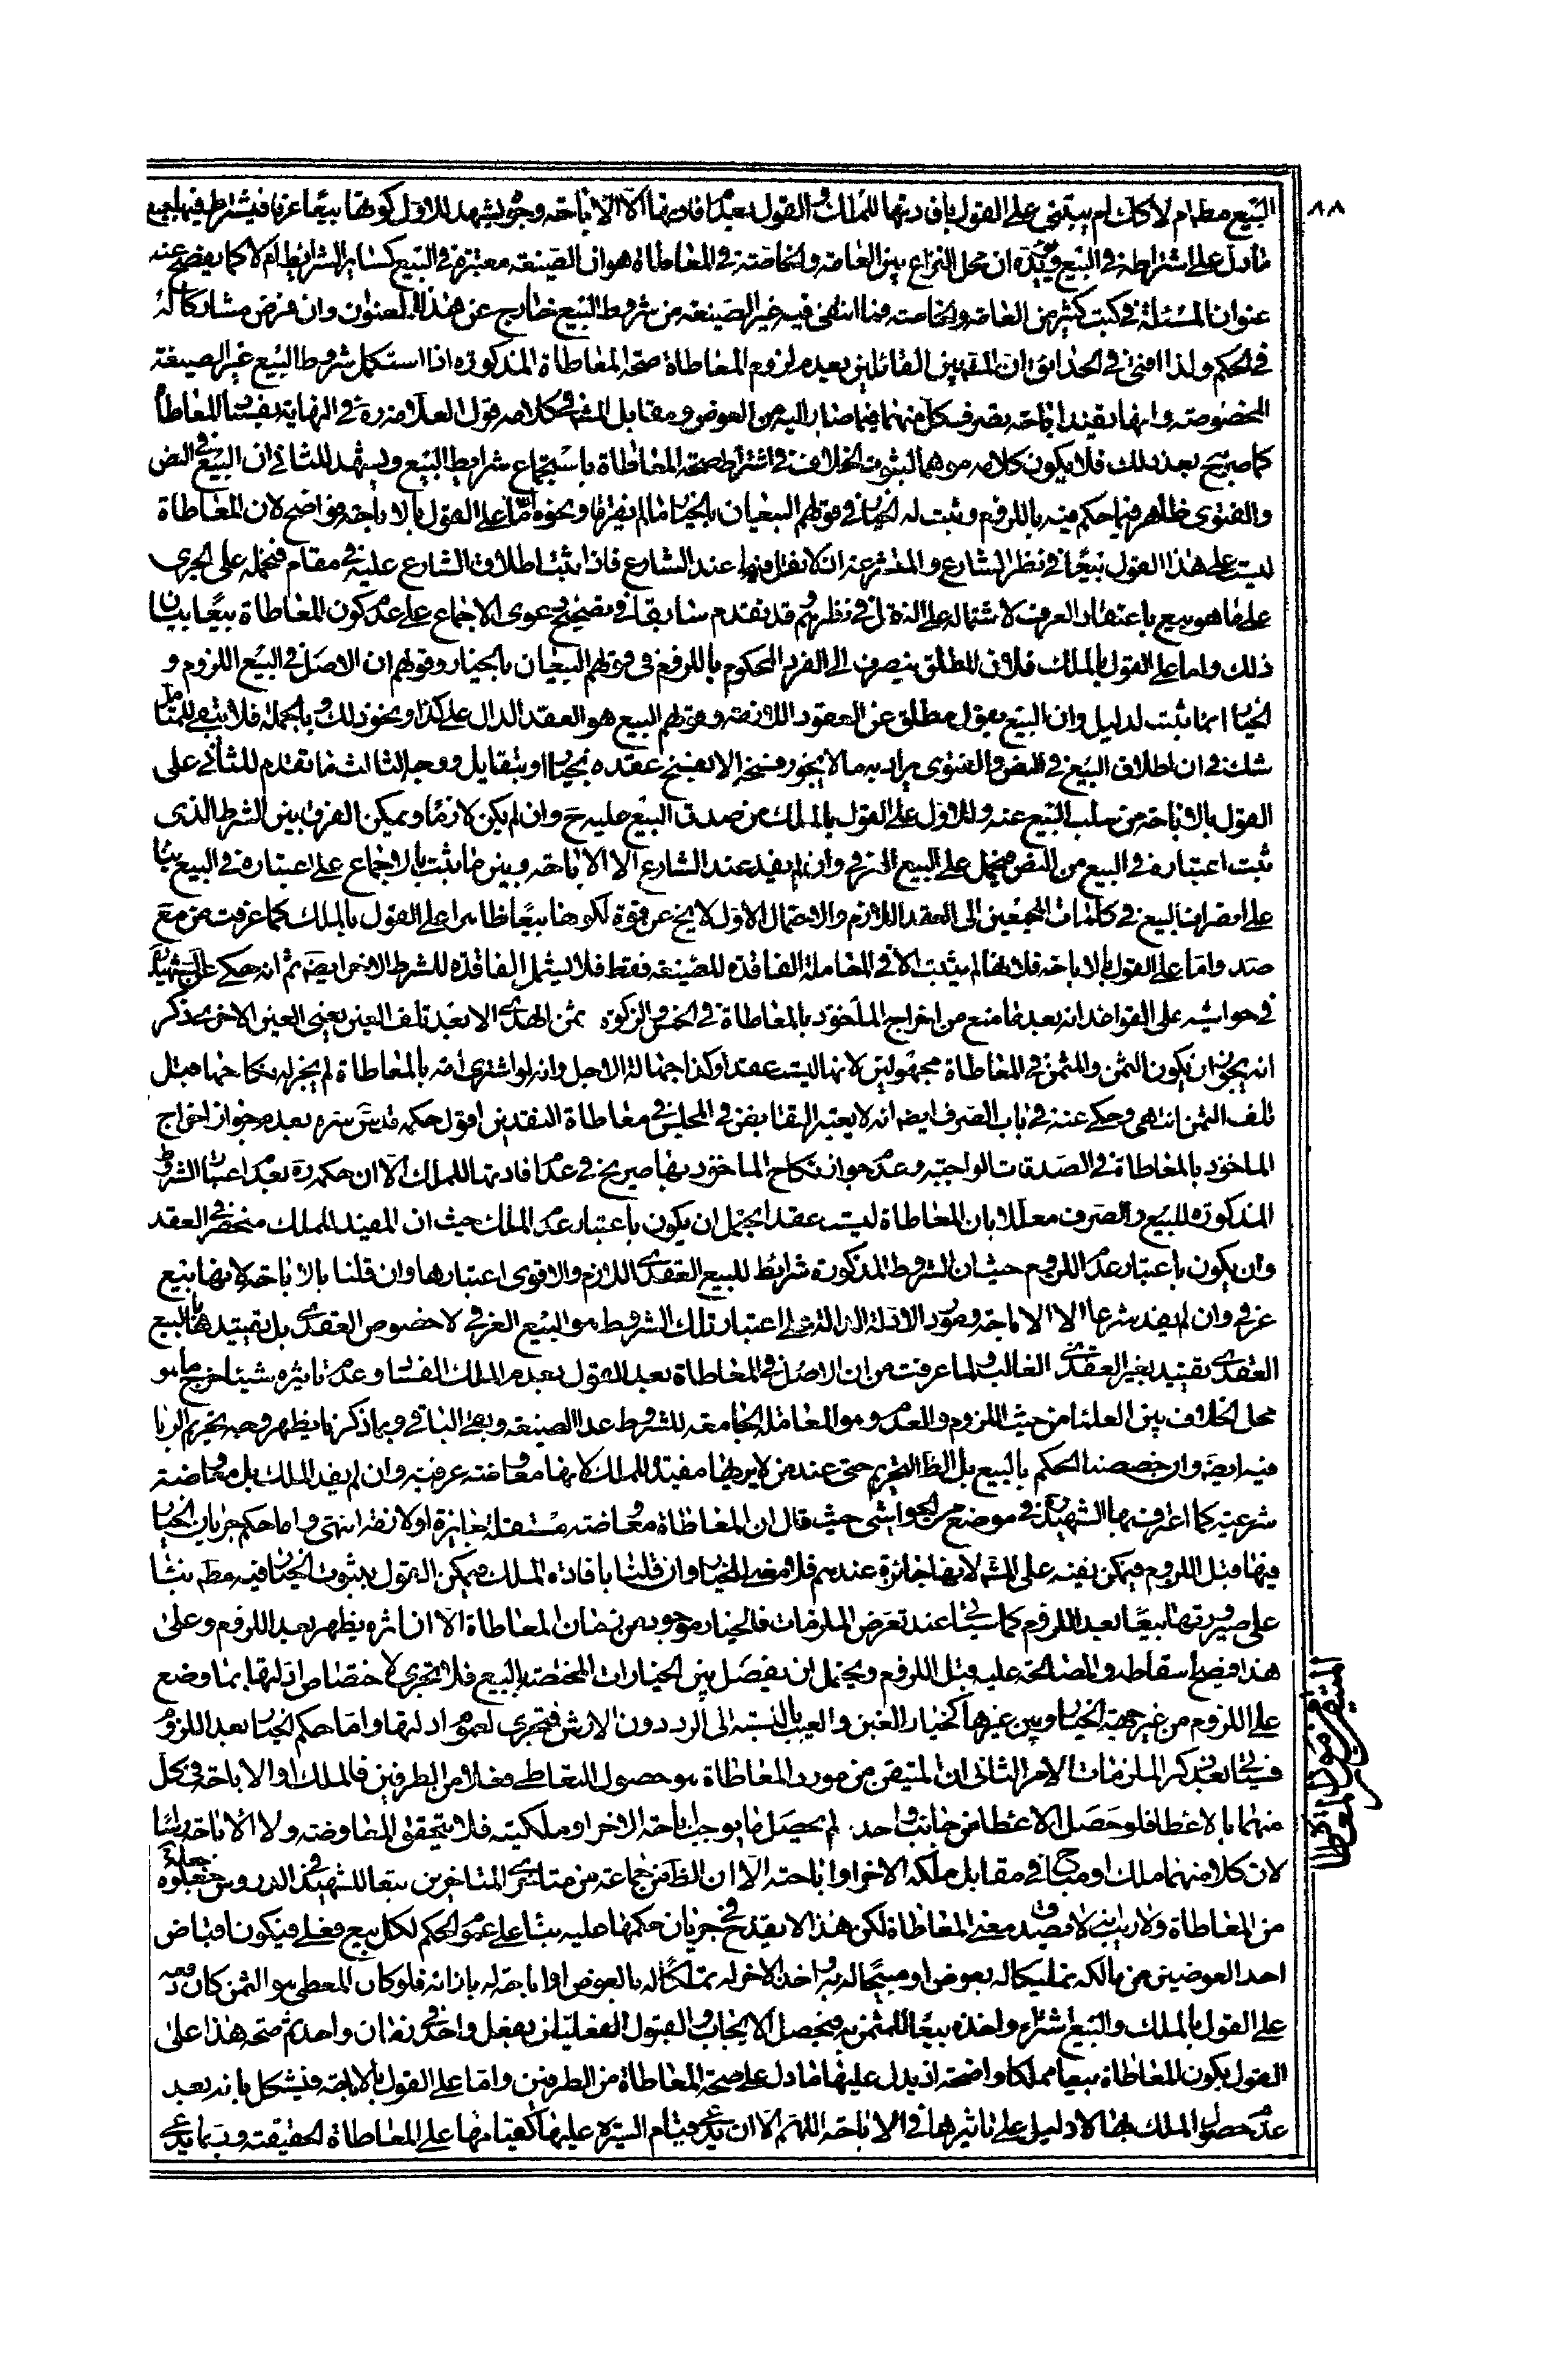 ٨٨
البيع مطم ام لا كك ام يبتنى على القول بافادتها للملك والقول بعدم افادتها الا الاباحة وجوه يشهد للاول كونها بيعا عرفا فيشترط فيها جميع
ما دل على اشتراطه في البيع ويؤيده ان محل النزاع بين العامة والخاصة في المعاطاة هو ان الصيغة معتبرة في البيع كسائر الشرائط ام لا كما يفصح عنه
عنوان المسئلة في كتب كثير من العامة والخاصة فما انتفى فيه غير الصيغة من شروط البيع خارج عن هذا العنوان وان فرض مشاركا له
في الحكم ولذا ادعى في الحدائق ان المشهور بين القائلين بعدم لزوم المعاطاة صحة المعاطاة المذكورة اذا استكمل شروط البيع غير الصيغة
المخصوصة وانها تفيد اباحة تصرف كل منهما فيما صار اليه من العوض ومقابل المشهور في كلامه قول العلامة ره في النهاية بفساد المعاطاة
كما صرح بعد ذلك فلا يكون كلامه موهما لثبوت الخلاف في اشتراط صحة المعاطاة باستجماع شرايط البيع ويشهد للثاني ان البيع في النص
والفتوى ظاهر فيما حكم فيه باللزوم وثبت له الخيار في قولهم البيعان بالخيار ما لم يفترقا ونحوه اما على القول بالاباحة فواضح لان المعاطاة
ليست على هذا القول بيعا في نظر الشارع والمتشرعة اذ لا نقل فيها عند الشارع فاذا ثبت اطلاق الشارع عليه في مقام فنحمله على الجرى
على ما هو بيع باعتقاد العرف لاشتماله على النقل في نظرهم وقد تقدم سابقا في تصحيح دعوى الاجماع على عدم كون المعاطاة بيعا بيان
ذلك واما على القول بالملك فلان المطلق ينصرف الى الفرد المحكوم باللزوم في قولهم البيعان بالخيار وقولهم ان الاصل في البيع اللزوم و
الخيار انما ثبت لدليل وان البيع بقول مطلق عن العقود اللازمة وقولهم البيع هو العقد الدال على كذا ونحو ذلك وبالجملة فلا يبقى للمتامل
شك في ان اطلاق البيع في النص والفتوى يراد به ما لا يجوز فسخه الا بفسخ عقده بخيار او بتقايل ووجه الثالث ما تقدم للثاني على
القول بالاباحة من سلب البيع عنه وللاول على القول بالملك من صدق البيع عليه ح وان لم يكن لازما ويمكن الفرق بين الشرط الذى
ثبت اعتباره في البيع من النص فيحمل على البيع العرفي وان لم يفد عند الشارع الا الاباحة وبين ما ثبت بالاجماع على اعتباره في البيع بناء
على انصراف البيع في كلمات المجمعين الى العقد اللازم والاحتمال الاول لا يخ عن قوة لكونها بيعا ظاهرا على القول بالملك كما عرفت من مع
صد واما على القول بالاباحة فلانها لم يثبت الا في المعاملة الفاقدة للصيغة فقط فلا يشمل الفاقدة للشرط الاخر ايضه ثم انه حكى عن الشهيد ره
في حواشيه على القواعد انه بعد ما منع من اخراج الماخوذ بالمعاطاة في الخمس والزكوة وثمن الهدى الا بعد تلف العين يعني العين الاخرى ذكر
انه يجوز ان يكون الثمن والمثمن في المعاطاة مجهولين لانها ليست عقدا وكذا جهالة الاجل وانه لو اشترى امة بالمعاطاة لم يجز له نكاحها قبل
تلف الثمن انتهى وحكى عنه في باب الصرف ايضه انه لا يعتبر التقابض في المجلس في معاطاة النقدين اقول حكمه قدس سره بعدم جواز اخراج
الماخوذ بالمعاطاة في الصدقات الواجبة وعدم جواز نكاح الماخوذ بها صريح في عدم افادتها للملك الا ان حكمه ره بعدم اعتبار الشروط
المذكورة للبيع والصرف معللا بان المعاطاة ليست عقدا يحتمل ان يكون باعتبار عدم الملك حيث ان المفيد للملك منحصر في العقد
وان يكون باعتبار عدم اللزوم حيث ان الشروط المذكورة شرائط للبيع العقدى اللازم والاقوى اعتبارها وان قلنا بالاباحة لانها بيع
عرفي وان لم يفد شرعا الا الاباحة ومورد الادلة الدالة على اعتبار تلك الشروط هو البيع العرفي لا خصوص العقدى بل تقييدها بالبيع
العقدى تقييد بغير الغالب ولما عرفت من ان الاصل في المعاطاة بعد القول بعدم الملك الفساد وعدم تاثيره شيئا خرج ما هو
محل الخلاف بين العلماء من حيث اللزوم والعدم وهو المعاملة الجامعة للشروط عدا الصيغة وبقى الباقي وبما ذكرنا يظهر وجه تحريم الربا
فيه ايضه وان خصصنا الحكم بالبيع بل الظ التحريم حتى عند من لا يراها مفيدة للملك لانها معاوضة عرفية وان لم يفد الملك بل معاوضة
شرعية كما اعترف بها الشهيد ره في موضع من الحواشى حيث قال ان المعاطاة معاوضة مستقلة جايزة او لازمة انتهى واما حكم جريان الخيار
فيها قبل اللزوم فيمكن نفيه على المشه لانها جائزة عندهم فلا معنى للخيار وان قلنا بافادة الملك فيمكن القول بثبوت الخيار فيه مطم بناء
على صيرورتها بيعا بعد اللزوم كما سيأتي عند تعرض الملزمات فالخيار موجود من زمان المعاطاة الا ان اثره يظهر بعد اللزوم وعلى
هذا فيصح اسقاطه والمصالحة عليه قبل اللزوم ويحتمل ان يفصل بين الخيارات المختصة بالبيع فلا تجرى لاختصاص ادلتها بما وضع
على اللزوم من غير جهة الخيار وبين غيرها كخيار الغبن والعيب بالنسبة الى الرد دون الارش فتجرى لعموم ادلتها واما حكم الخيار بعد اللزوم
فسيأتي بعد ذكر الملزمات الامر الثاني ان المتيقن من مورد المعاطاة هو حصول التعاطى فعلا من الطرفين فالملك او الاباحة في كل
منهما بالاعطاء فلو حصل الاعطاء من جانب واحد لم يحصل ما يوجب اباحة الاخر او ملكيته فلا يتحقق المعاوضة ولا الاباحة راسا
لان كلا منهما ملك او مباح في مقابل ملكه الاخر او اباحته الا ان الظ من جماعة من متاخرى المتاخرين تبعا للشهيد في الدروس جعله
من المعاطاة ولا ريب انه لا يصدق معنى المعاطاة لكن هذا لا يقدح في جريان حكمها عليه بناء على عموم الحكم لكل بيع فعلى فيكون اقباض
احد العوضين من مالكه تمليكا له بعوض او مبيحا له به واخذ الاخر له تملكا له بالعوض او اباحة له بازائه فلو كان المعطى هو الثمن كان دفعه
على القول بالملك والبيع اشتراء واخذه بيعا للمثمن به فيحصل الايجاب والقبول الفعليان بفعل واحد في زمان واحد ثم صحة هذا على
القول بكون المعاطاة بيعا مملكا واضحة اذ يدل عليها ما دل على صحة المعاطاة من الطرفين واما على القول بالاباحة فيشكل بانه بعد
عدم حصول الملك بها لا دليل على تاثيرها في الاباحة اللهم الا ان يدعى قيام السيرة عليها كقيامها على المعاطاة الحقيقية وربما يدعى
المتيقن من مورد المعاطاة